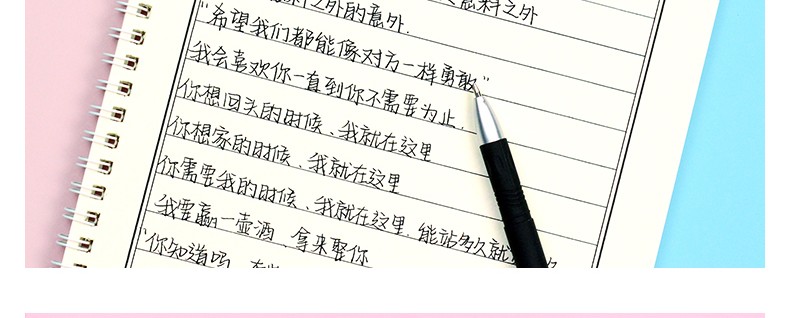 料之外的意外.
意料之外
"希望我们都能像对方一样勇敢"
我会喜欢你一直到你不需要为止.
你想回头的时候、我就在这里
你想家的时候、我就在这里
你需要我的时候、我就在这里.能站多久就
我要赢一壶酒、拿来娶你
"你知道吗